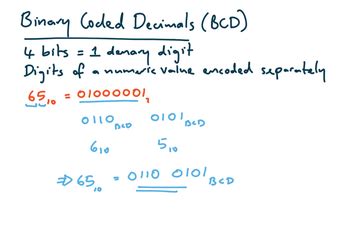 Binary Coded Decimals (BCD)
4 bits = 1 denary digit
Digits of a numeric value encoded separately
65₁₀ = 01000001₂
0110 BCD 0101 BCD
6₁₀ 5₁₀
⇒ 65₁₀ = 0110 0101 BCD